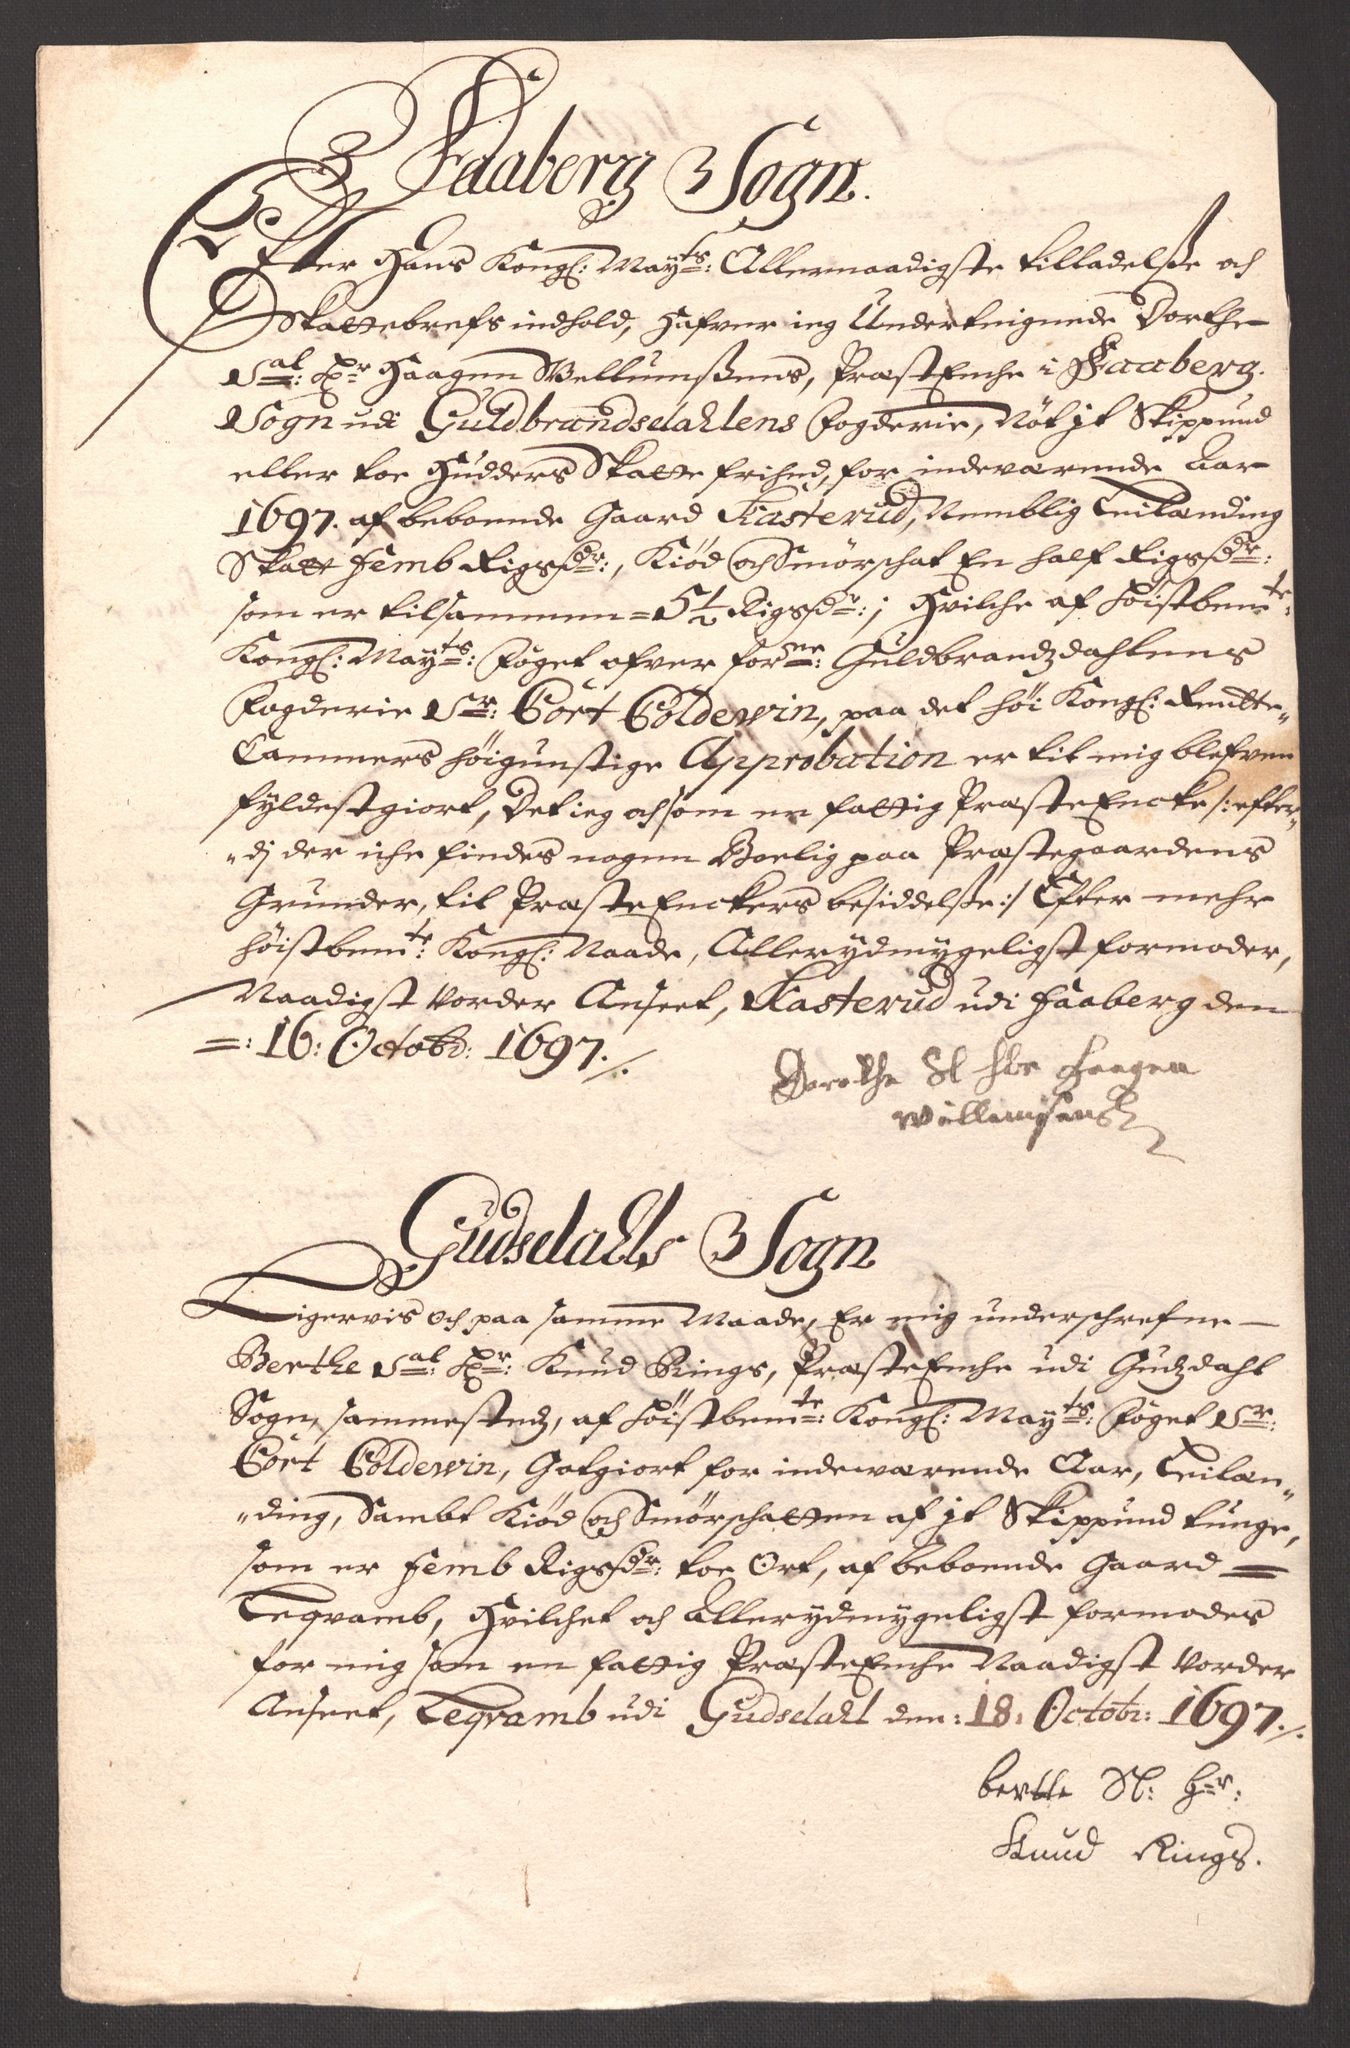 Faaberg Sogn.
Efter Hans Kongl: Mayts: Allernaadigste tilladelße och
Skattebrefs indhold, Hafver ieg Underteignede Dorthe
Sal: Hr Haagen Wellumßens, PræstEnche i Faaberg
Sogn udi Guldbrandsdahlens Fogderie, Nöt jt Skippund
eller toe Hudders Skatte frihed, for indeværende Aar
1697. af beboende Gaard Kasterud, Nemblig Leilænding
Skatt Femb Rigsdr:, Kiöd och Smörschat En half Rigsdr:
som er tilsammen = 5½ Rigsdr:; Hvilche af Höistbemte:
Kongl: Mayts: Foget ofver forne: Guldbrandzdahlens
Fogderie Sr: Cort Coldewin, paa det höi Kongl: Rendte„
Cammers höigunstige Approbation er til mig blefven
fyldestgiort, Det ieg och som en fattig PræsteEncke /: efter„
„dj der iche findes nogen Boelig paa Præstegaardens
Grunder, til PræsteEnckers besiddelße :/ Efter mehr
höistbemte: Kongl: Naade, Allerydmygeligst formoder,
Naadigst vorder Anseet, Kasterud udi Faaberg den
=: 16: Octobr: 1697./.
Dorethe Sl Her Haagen
Willemsens
Gudsdahls Sogn
Ligervis och paa samme Maade, Er mig underschrefne
Berthe Sal: Hr: Knud Rings, PræsteEnche udi Gudzdahl
Sogn, sammestedz, af Höistbemte: Kongl: Mayts: Foget Sr:
Cort Coldewin, Gotgiort for indeværende Aar, Leilæn„
„ding, Sambt Kiöd och Smörschatten af jt Skippund tunge,
som er Femb Rigsdr: toe Ort, af beboende Gaard =
Leqvamb, Hvilchet och Allerydmygeligst formodes
for mig som en fattig PræsteEnche Naadigst vorder
Anseet, Leqvamb udi Gudsdahl den: 18: Octobr: 1697./.
berthe Sl: Hr:
Knud Rings.